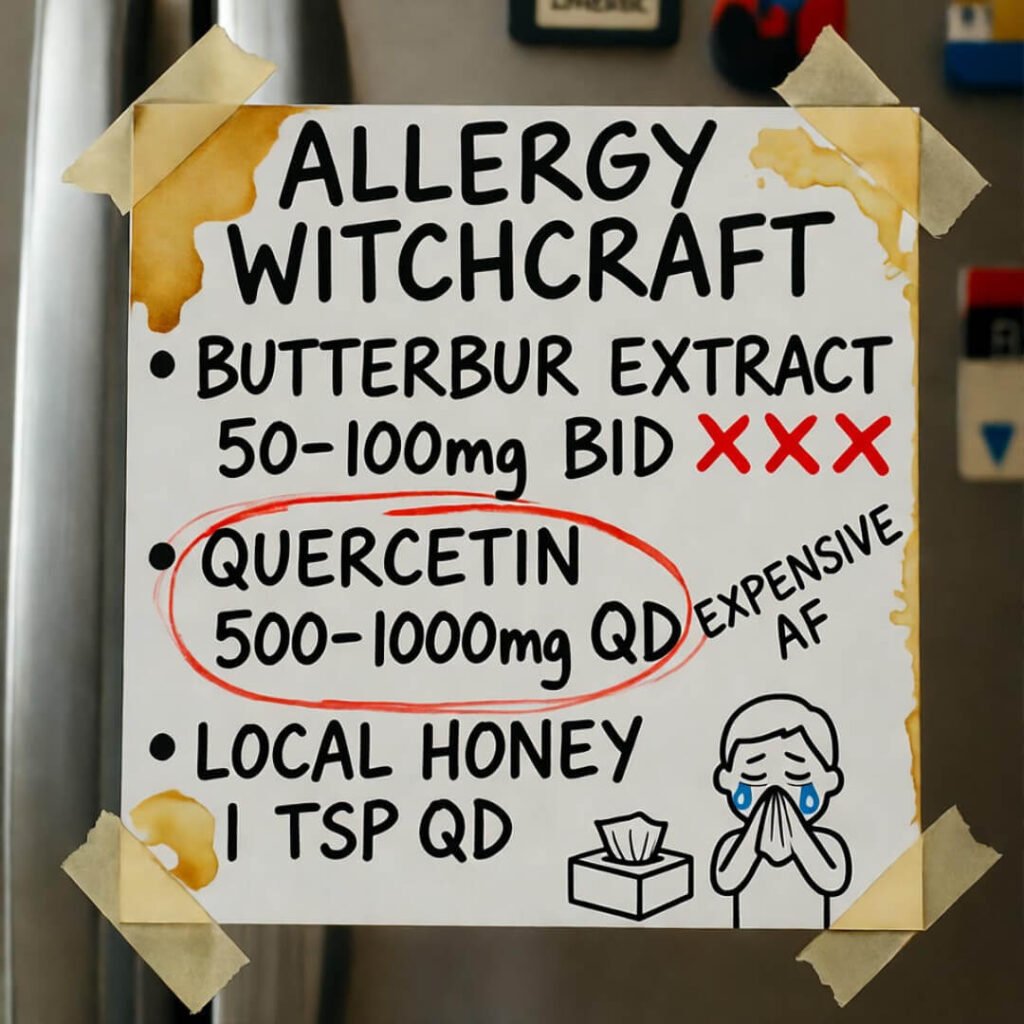 ALLERGY
WITCHCRAFT
• BUTTERBUR EXTRACT
50-100mg BID XXX
• QUERCETIN
500-1000mg QD
EXPENSIVE
AF
• LOCAL HONEY
1 TSP QD